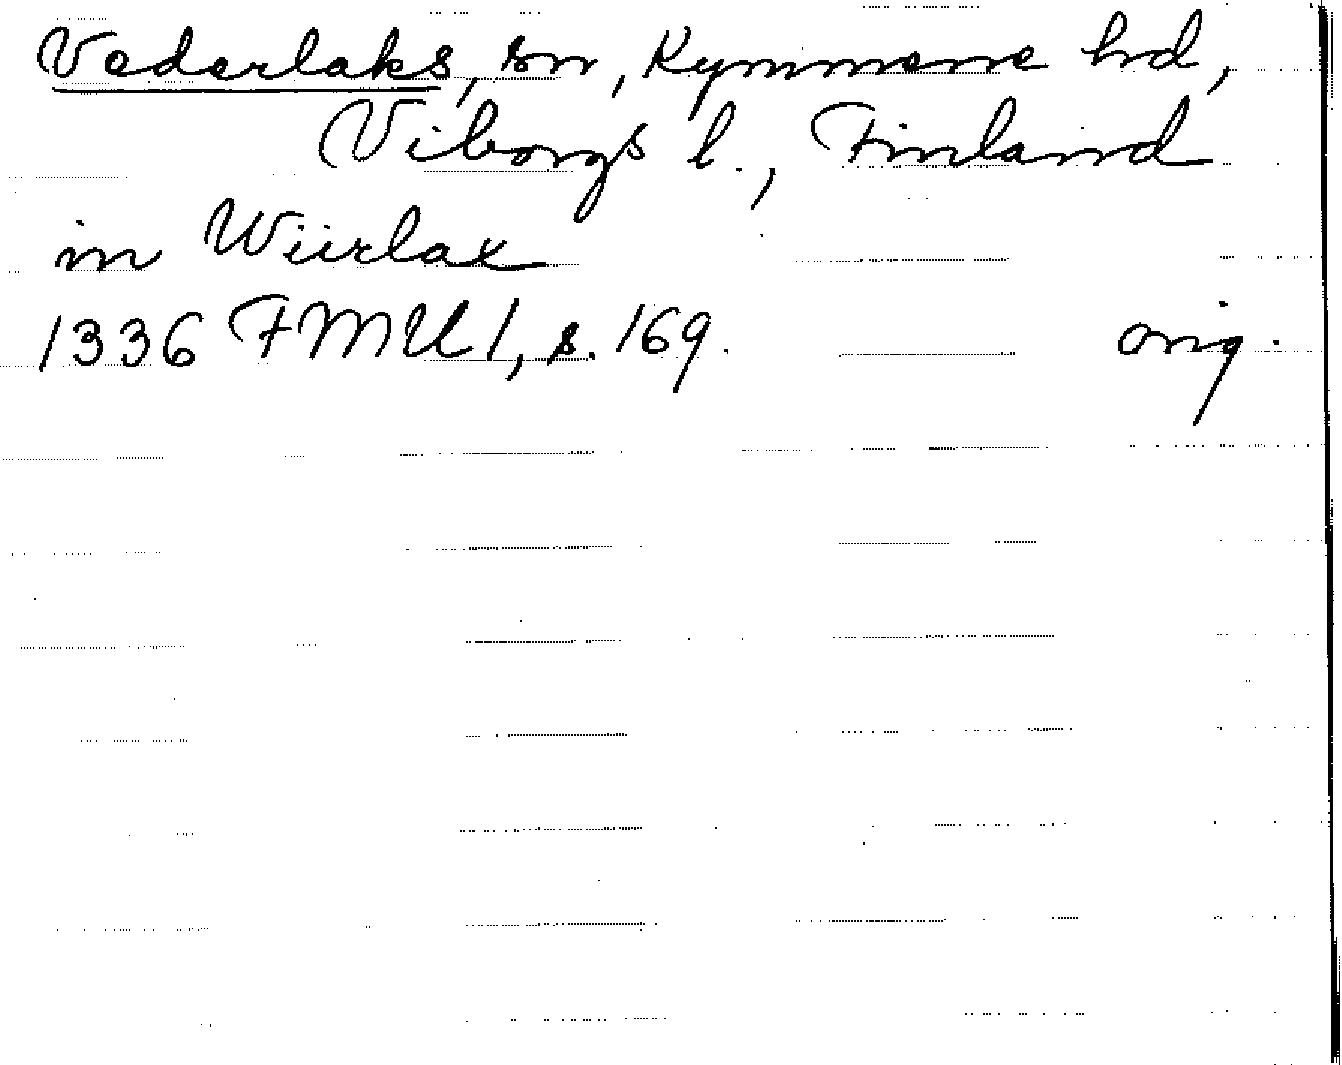 Vederlaks, sn, Kymmene hd,
Viborgs l., Finland
in Wiirlax
1336 FMU 1, s. 169. orig.